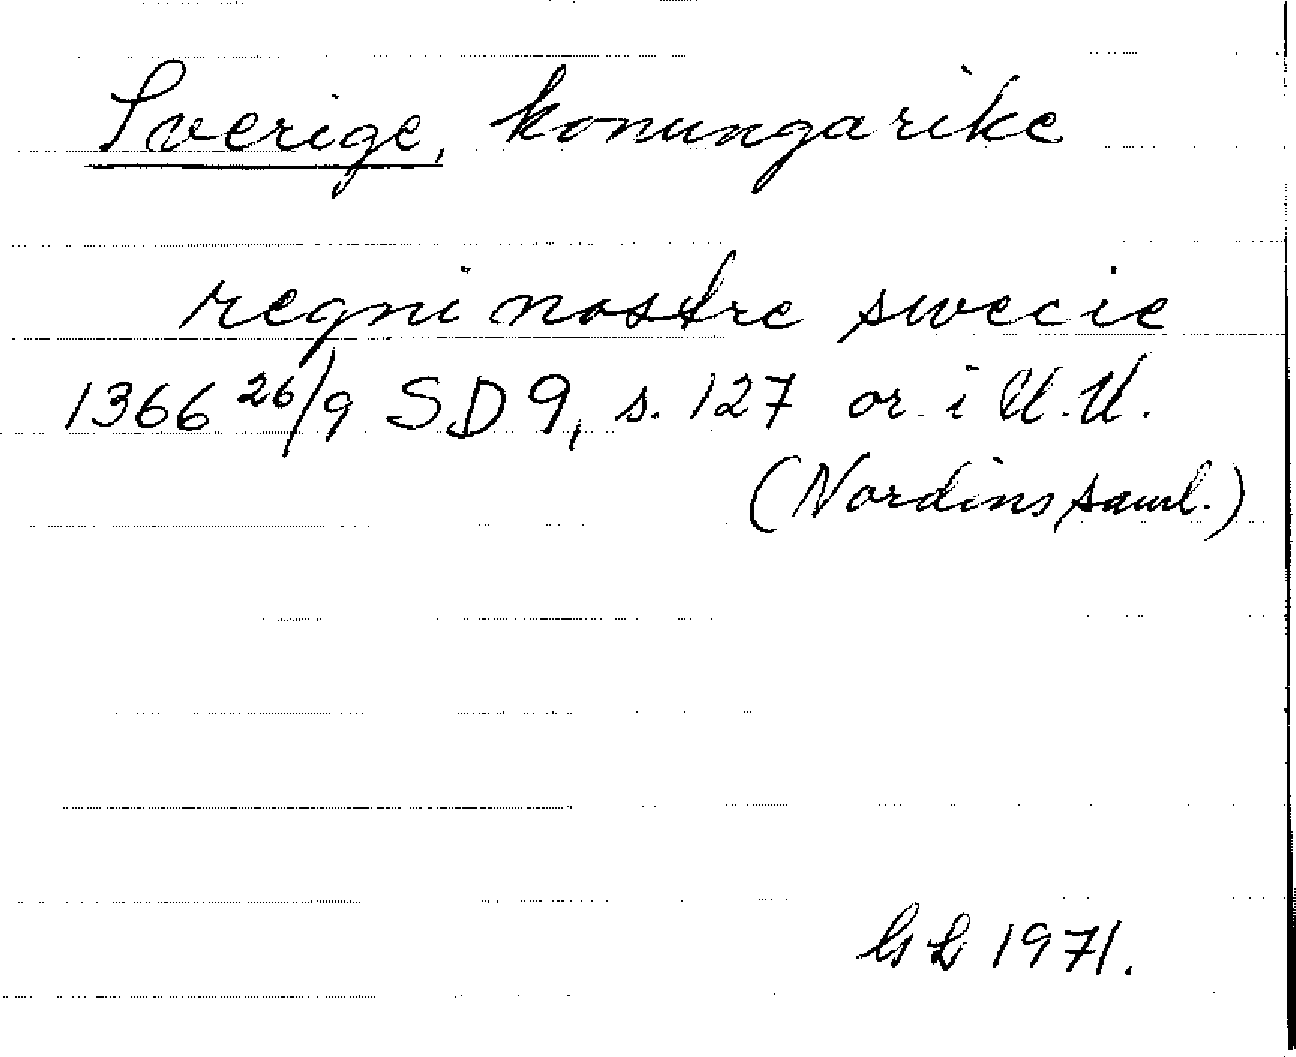 Sverige, konungarike
regni nostre swecie
1366 26/9 SD 9, s. 127 or i U.U.
(Nordins saml.)
GL 1971.